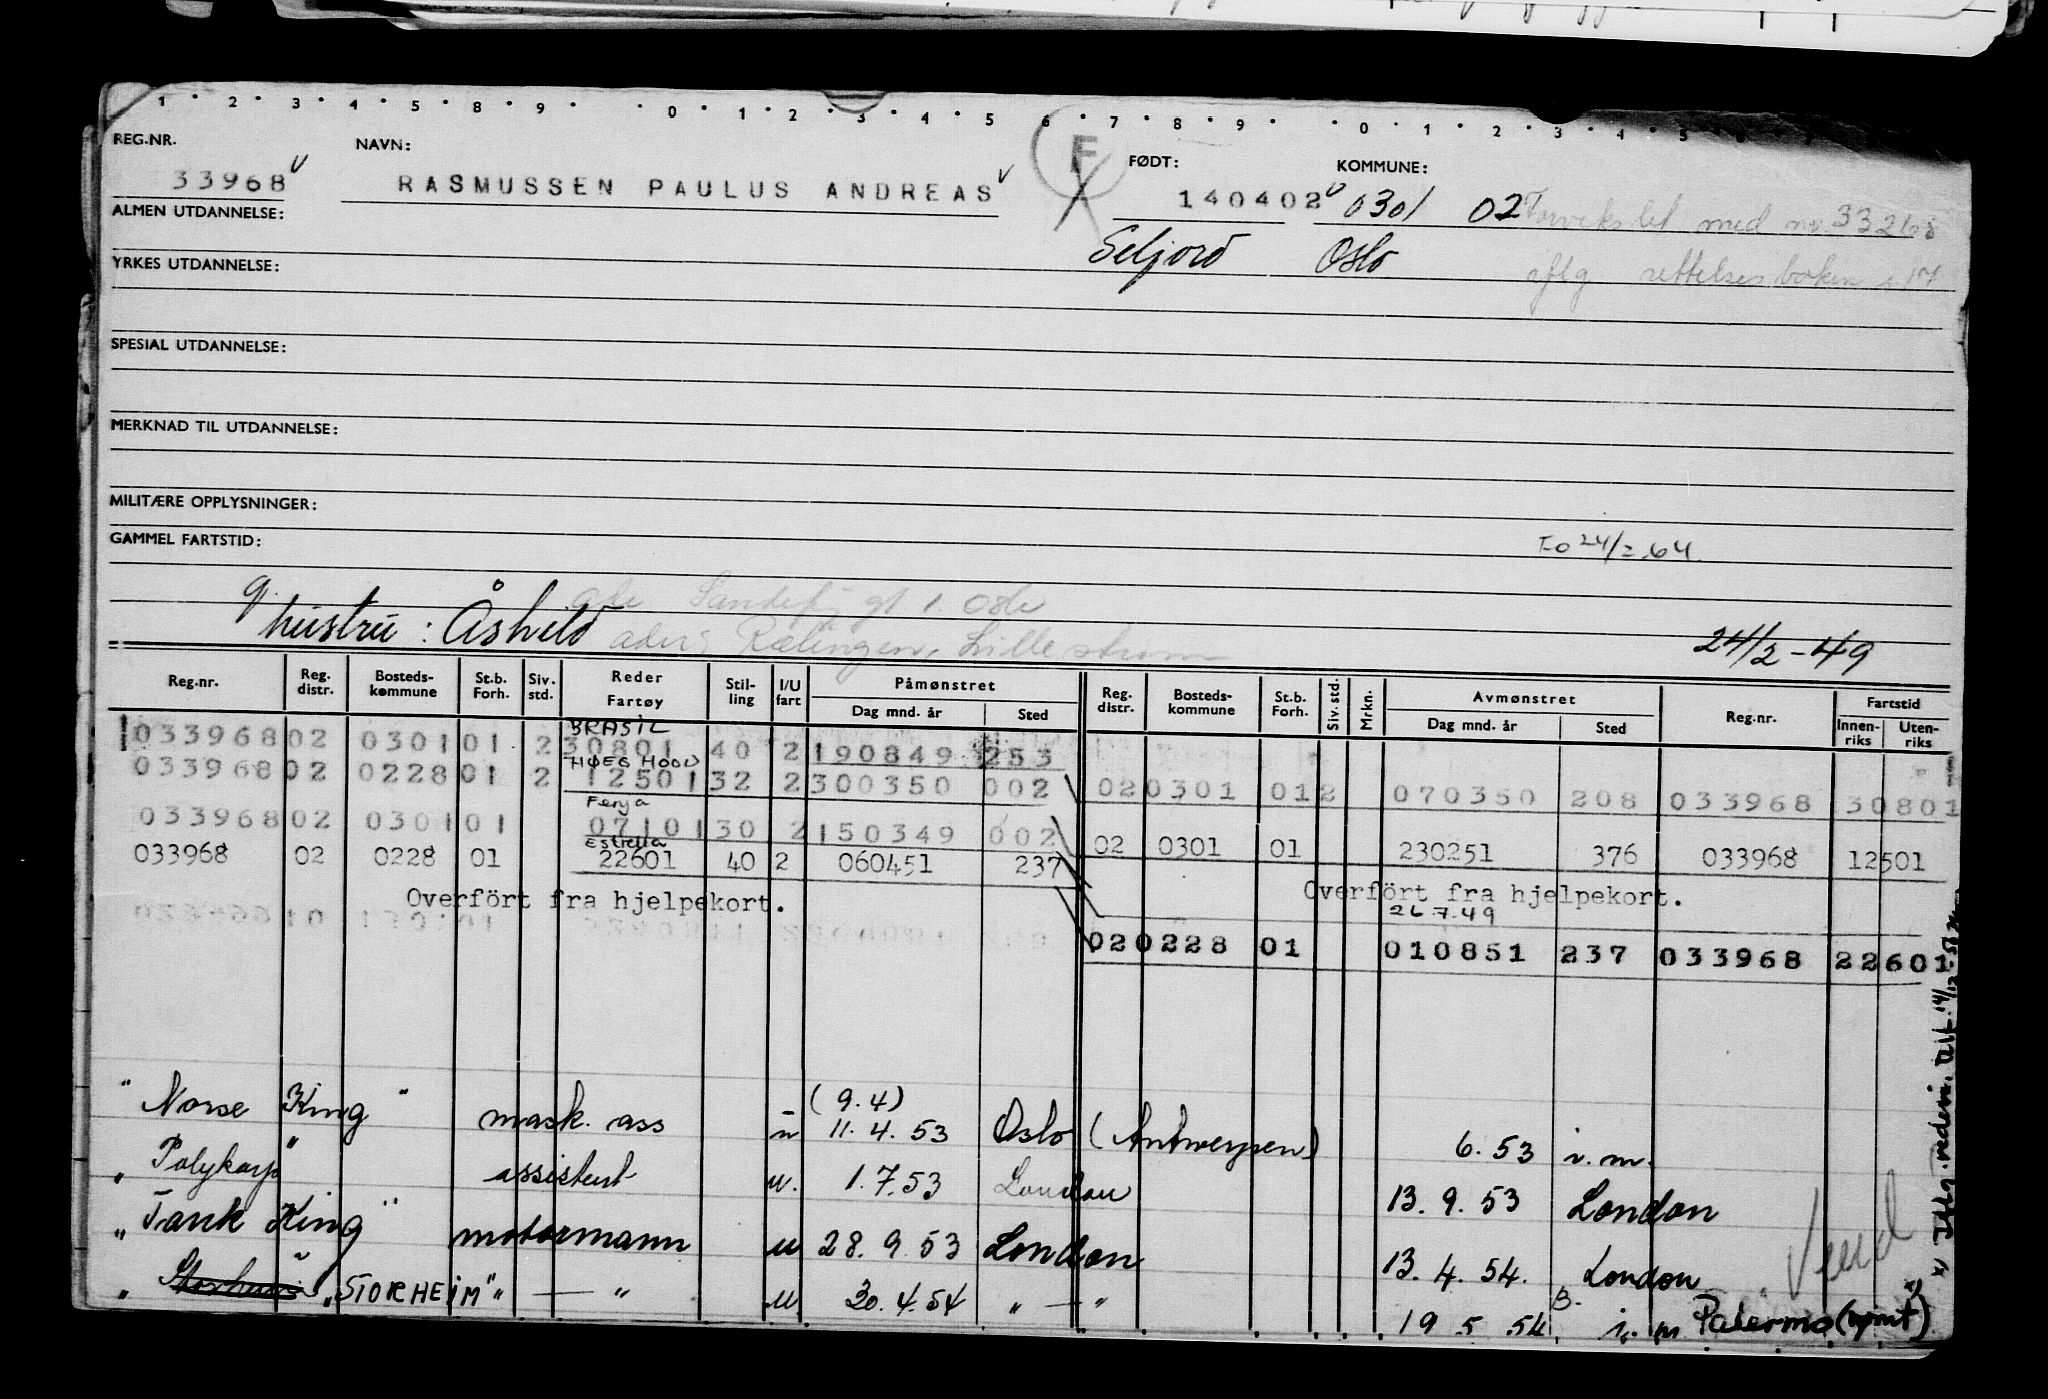 1 2 3 4 5 8 9 0 1 2 3 4 5 6 7 8 9 0 1 2 3 4 5 6
REG.NR. NAVN: F FØDT: KOMMUNE:
33968 RASMUSSEN PAULUS ANDREAS 140402 0301 02 Forvekslet med nr. 33268
ALMEN UTDANNELSE: Seljord Oslo iflg rettelsesboken s 17
YRKES UTDANNELSE:
SPESIAL UTDANNELSE:
MERKNAD TIL UTDANNELSE:
MILITÆRE OPPLYSNINGER:
GAMMEL FARTSTID: Fo 24/2.64.
g. hustru: Åshild Oslo
adr: Rælingen, Lillestrøm 24/2-49
Reg.nr. Reg. distr. Bosteds-kommune St.b. Forh. Siv. std. Reder Fartøy Stil-ling I/U fart Påmønstret Dag mnd. år Sted Reg. distr. Bosteds-kommune St.b. Forh. Siv. std. Mrkn. Avmønstret Dag mnd. år Sted Reg.nr. Fartstid Innen-riks Uten-riks
BRASIL
033968 02 0301 01 2 30801 40 2 190849 253
HØEG HOOD
033968 02 0228 01 2 12501 32 2 300350 002 02 0301 01 2 070350 208 033968 30801
Fernja
033968 02 0301 01 07101 30 2 150349 002
Estrella
033968 02 0228 01 22601 40 2 060451 237 02 0301 01 230251 376 033968 12501
Overfört fra hjelpekort. Overfört fra hjelpekort.
26.7.49
02 0228 01 010851 237 033968 22601
"Norse King" mask. ass u (9.4) 11.4.53 Oslo (Antwerpen) 6.53 i.m.
"Polykarp" assistent u. 1.7.53 London 13.9.53 London
"Tank King" motormann u 28.9.53 London 13.4.54. London
" "STORHEIM" — " u. 30.4.54 " — " 19.5.54 i. m Palermo (rømt) x)
x) Iflg. rederi